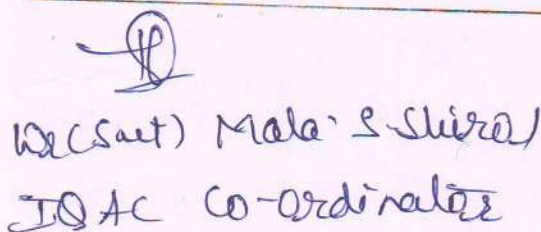 Dr(Smt) Mala. S. Shiral
IQAC Co-ordinator